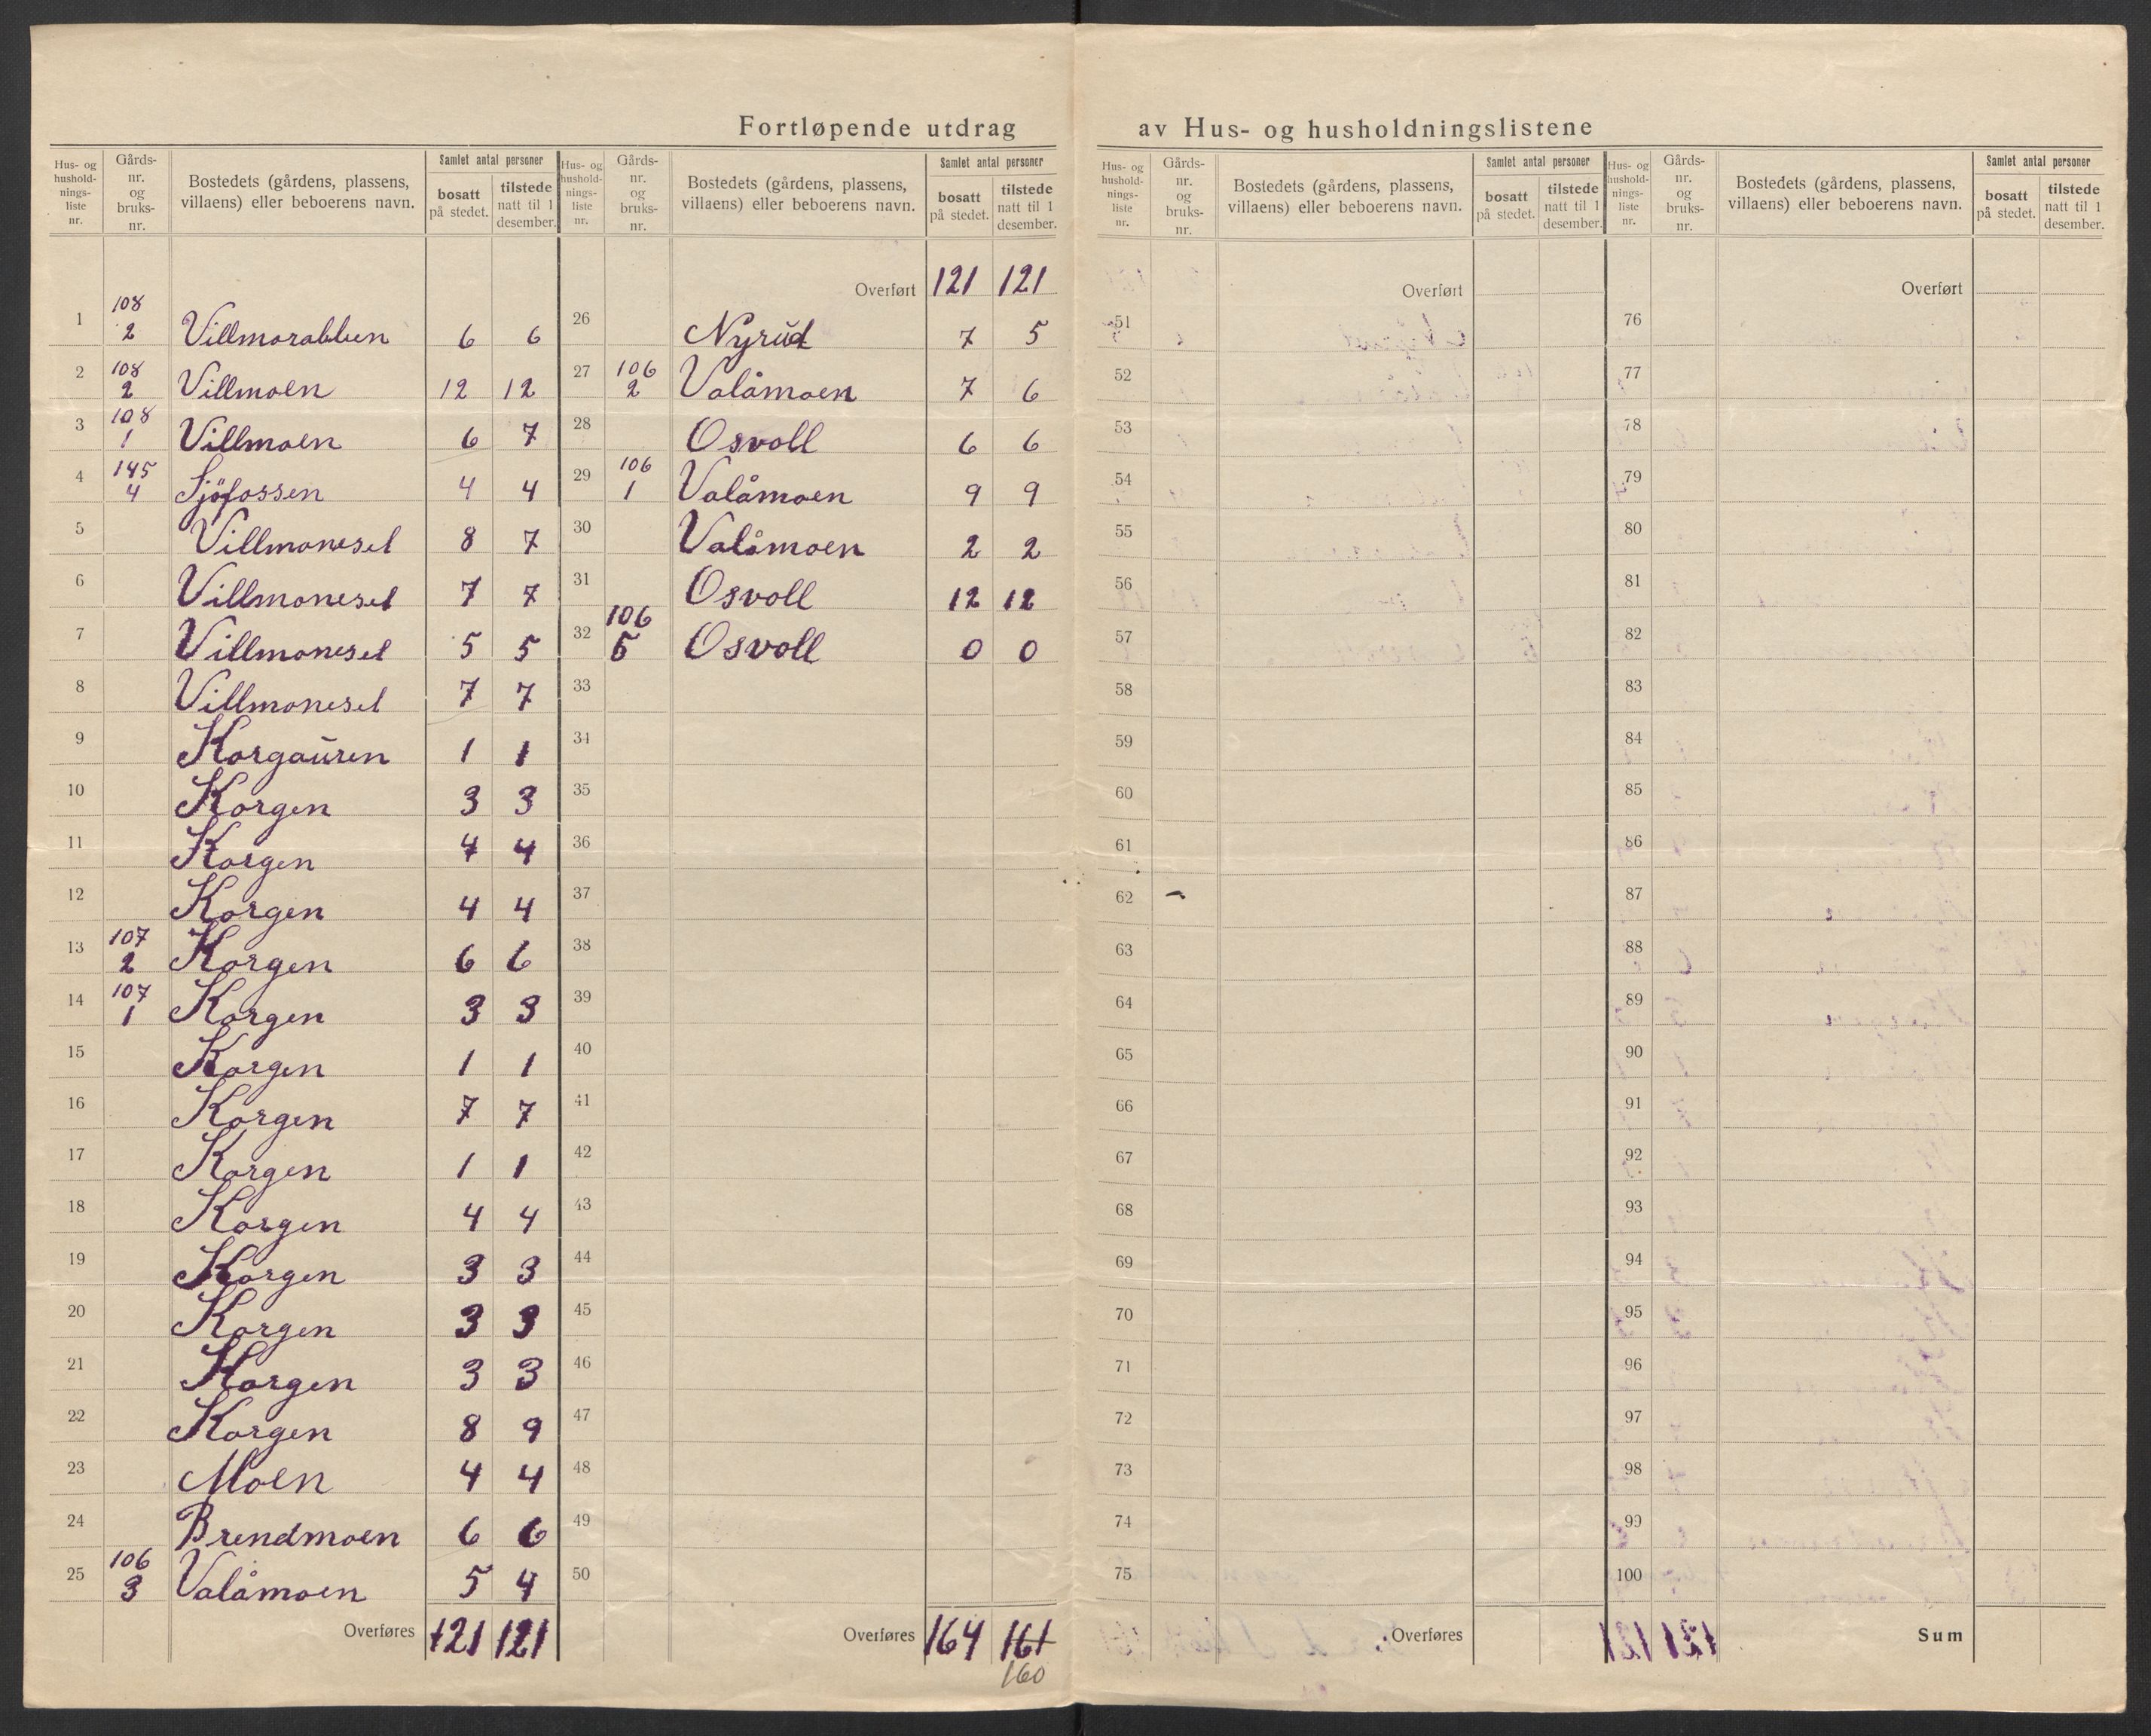 Fortløpende utdrag av Hus- og husholdningslistene
Hus- og hushold-nings-liste nr. Gårds-nr. og bruks-nr. Bostedets (gårdens, plassens, villaens) eller beboerens navn. Samlet antal personer bosatt på stedet. tilstede natt til 1 desember.
1 108 2 Villmorabben 6 6
2 108 2 Villmoen 12 12
3 108 1 Villmoen 6 7
4 145 4 Sjöfossen 4 4
5 Villmonesel 8 7
6 Villmonesel 7 7
7 Villmonesel 5 5
8 Villmonesel 7 7
9 Korgauren 1 1
10 Korgen 3 3
11 Korgen 4 4
12 Korgen 4 4
13 107 2 Korgen 6 6
14 107 1 Korgen 3 3
15 Korgen 1 1
16 Korgen 7 7
17 Korgen 1 1
18 Korgen 4 4
19 Korgen 3 3
20 Korgen 3 3
21 Korgen 3 3
22 Korgen 8 9
23 Moen 4 4
24 Brendmoen 6 6
25 106 3 Valåmoen 5 4
Overføres 121 121
Hus- og hushold-nings-liste nr. Gårds-nr. og bruks-nr. Bostedets (gårdens, plassens, villaens) eller beboerens navn. Samlet antal personer bosatt på stedet. tilstede natt til 1 desember.
Overført 121 121
26 Nyrud 7 5
27 106 2 Valåmoen 7 6
28 Osvoll 6 6
29 106 1 Valåmoen 9 9
30 Valåmoen 2 2
31 Osvoll 12 12
32 106 5 Osvoll 0 0
33
34
35
36
37
38
39
40
41
42
43
44
45
46
47
48
49
50
Overføres 164 161
160
Hus- og hushold-nings-liste nr. Gårds-nr. og bruks-nr. Bostedets (gårdens, plassens, villaens) eller beboerens navn. Samlet antal personer bosatt på stedet. tilstede natt til 1 desember.
Overført
51
52
53
54
55
56
57
58
59
60
61
62
63
64
65
66
67
68
69
70
71
72
73
74
75
Overføres
Hus- og hushold-nings-liste nr. Gårds-nr. og bruks-nr. Bostedets (gårdens, plassens, villaens) eller beboerens navn. Samlet antal personer bosatt på stedet. tilstede natt til 1 desember.
Overført
76
77
78
79
80
81
82
83
84
85
86
87
88
89
90
91
92
93
94
95
96
97
98
99
100
Sum